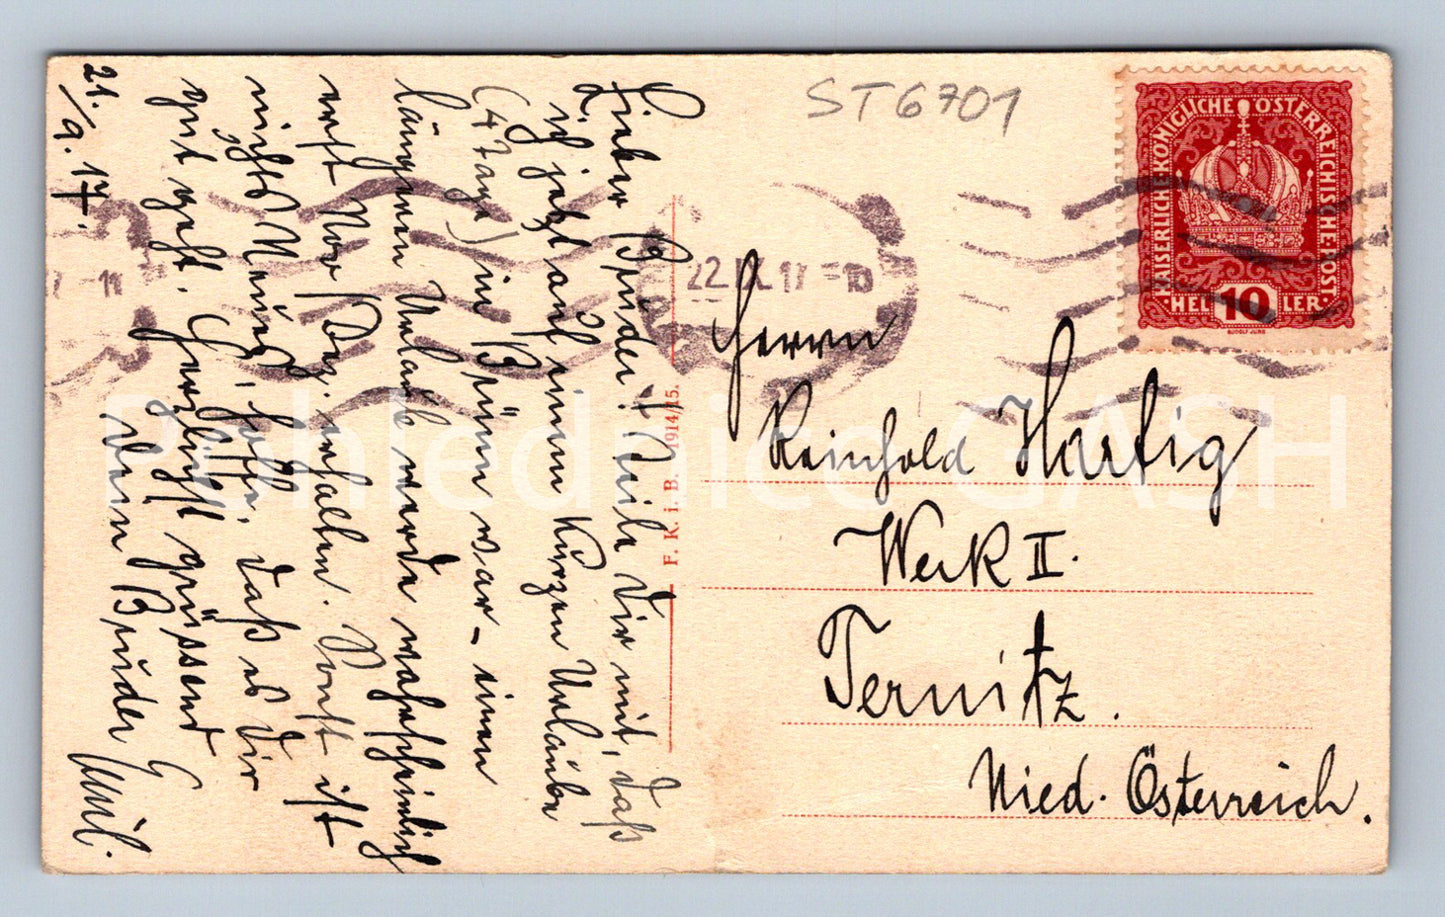 21./9. 17.
Lieber Bruder! Teile Dir mit, daß
ich jetzt auf einen kurzen Urlaube
(4 Tage) in Brünn war – einen
längeren Urlaub werde wahrscheinlich
erst Nov/Dez. erhalten. Sonst ist
nichts Neues, hoffe, daß es Dir
gut geht. Herzlichst grüssend
Dein Bruder
Emil.
F. K. i. B. 1914/15.
ST6701
KAISERLICHE KÖNIGLICHE ÖSTERREICHISCHE POST.
10
HELLER.
22 IX 17 -10
Herrn
Reinhold Hartig
Werk II.
Ternitz.
Nied. Österreich.
Pohlednice GASH